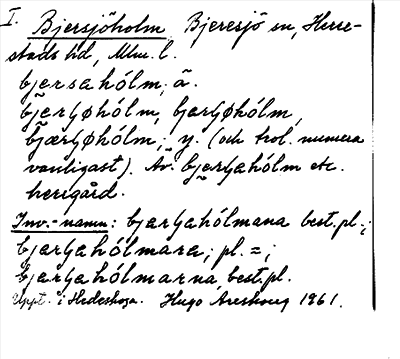 I. Bjersjöholm Bjeresjö sn, Herre-
stads hd, Mlm. l.
bjersahólm, ä.
bjerʃøhólm, bjarʃøhólm,
bjærʃøhólm, y. (och trol. numera
vanligast). Äv. bjerʃahólm etc.
herrgård.
Inv.-namn: bjarʃahólmana best. pl.;
bjarʃahólmara, pl. =;
bjarʃahólmarna, best. pl.
Uppt. i Hedeskoga. Hugo Areskoug 1961.